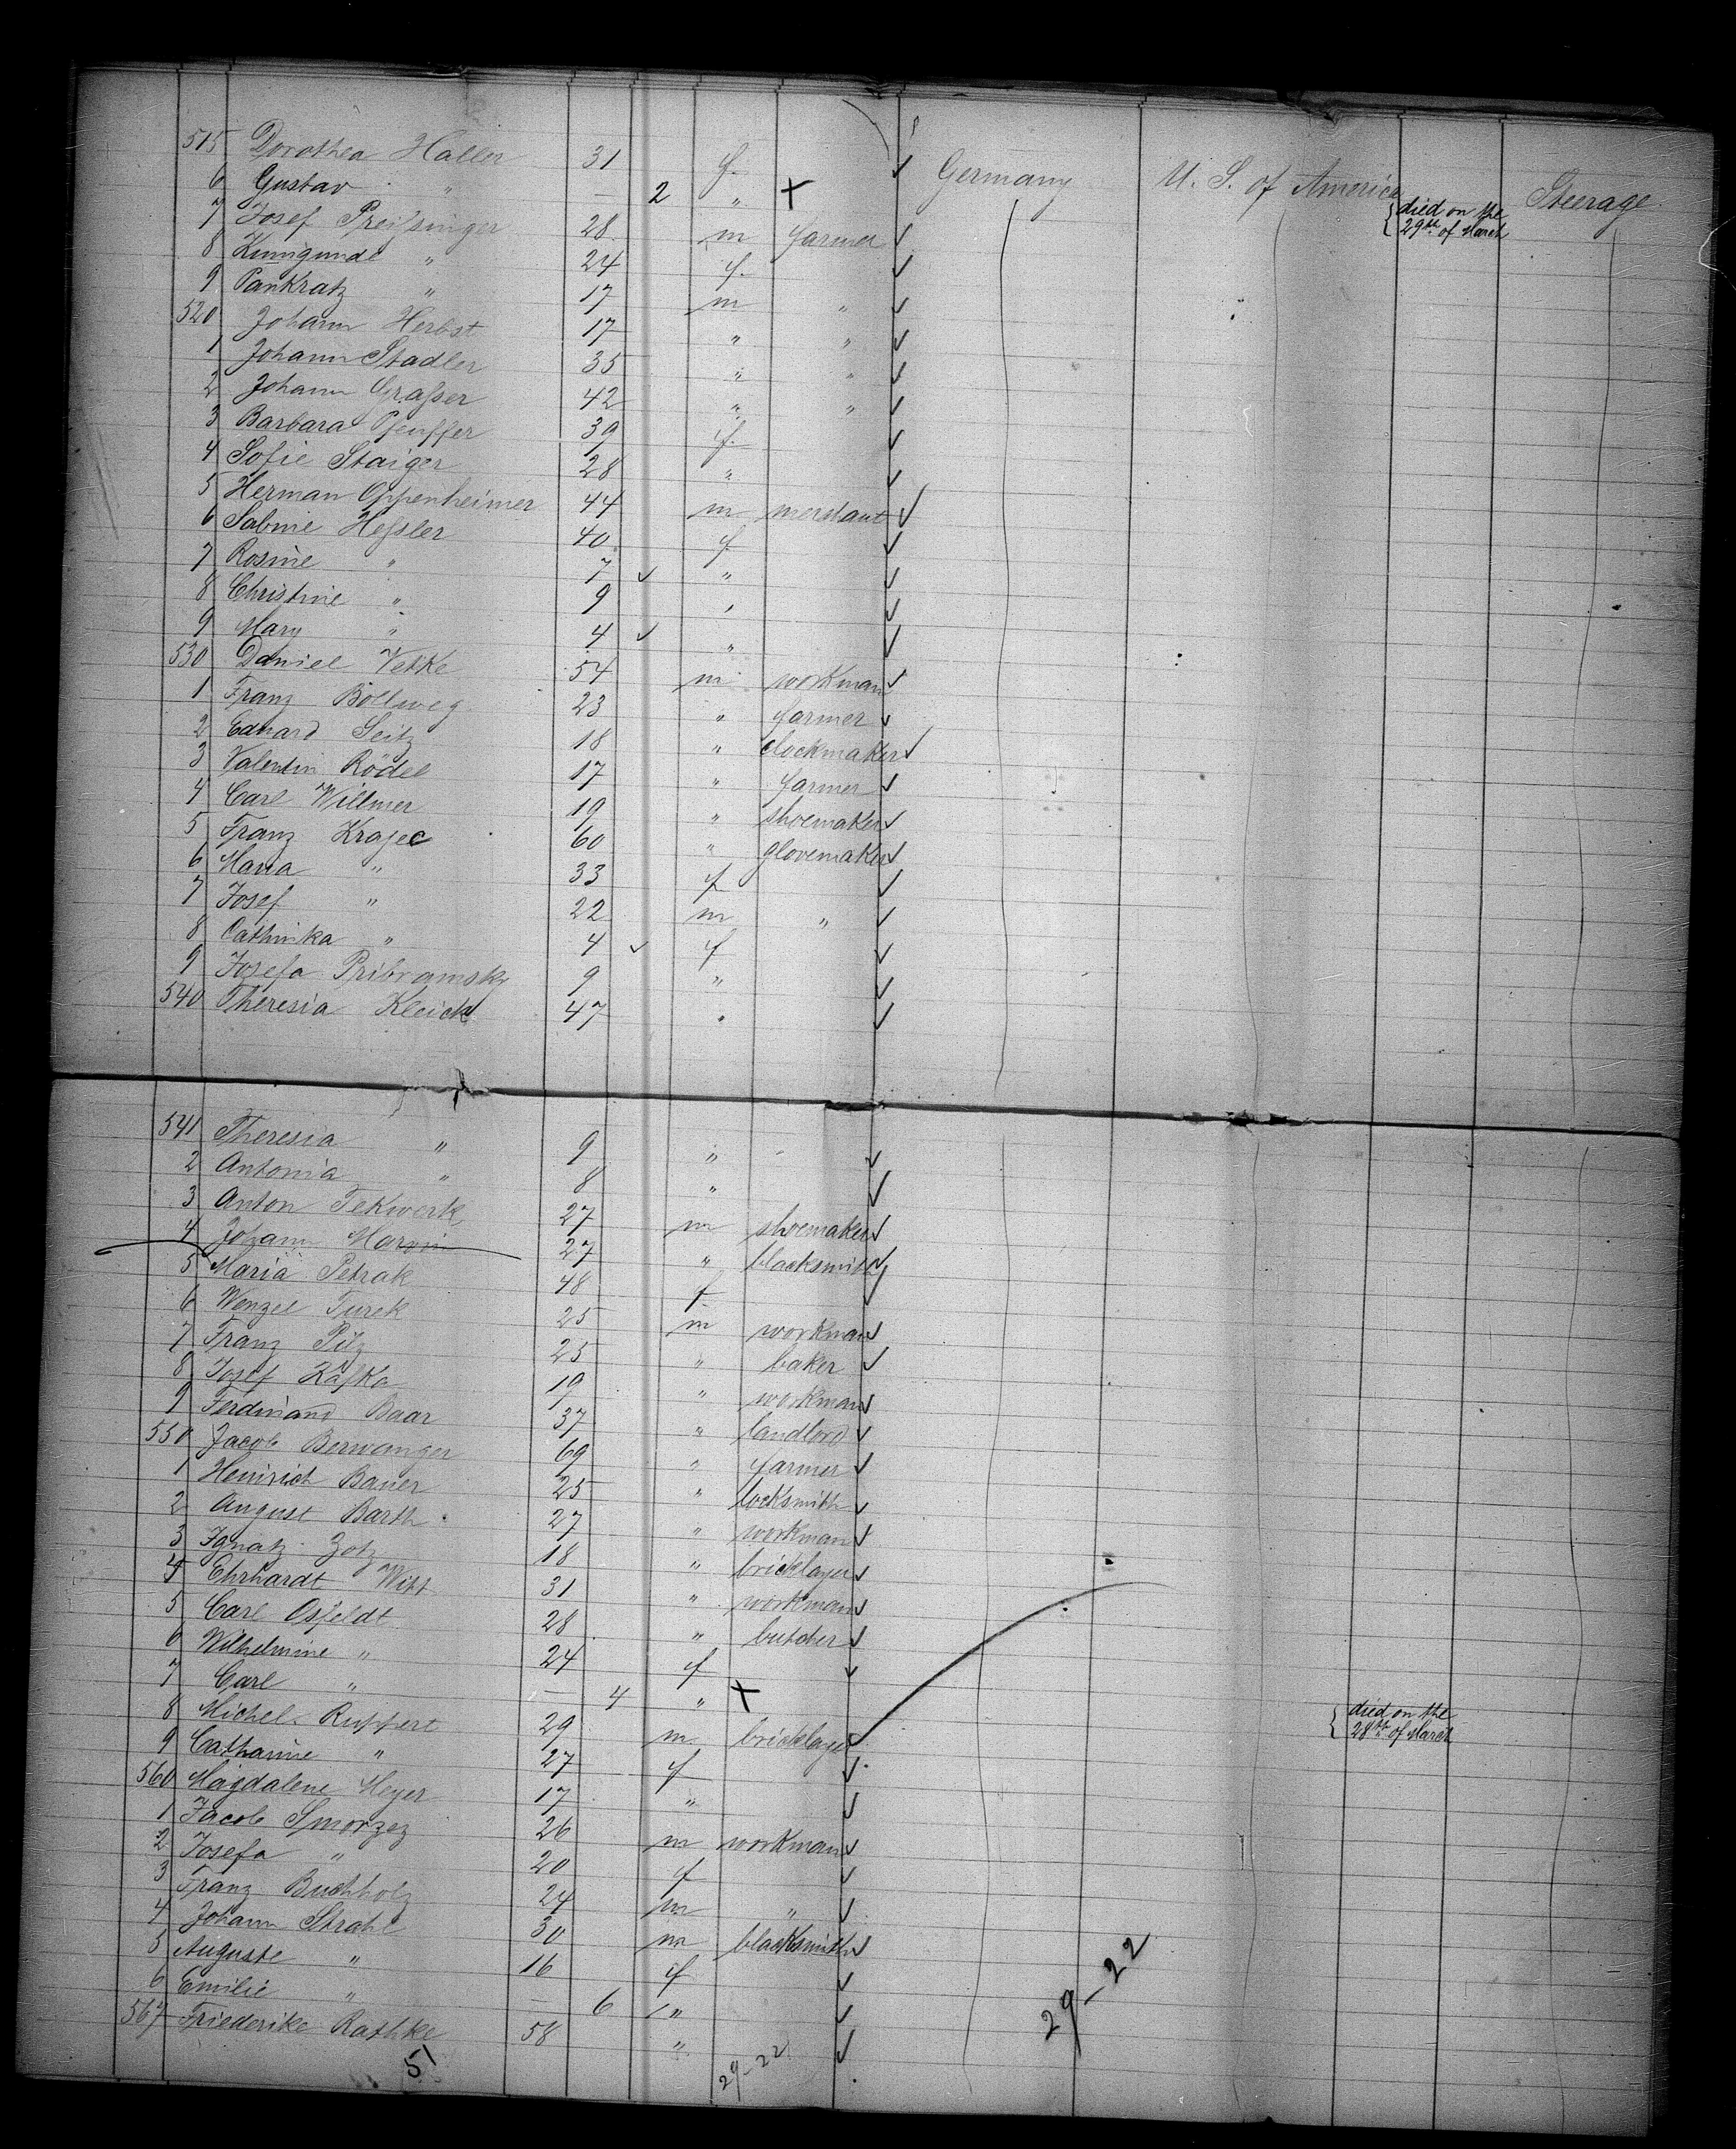 515 Dorothea Haller 31 f. ✓ Germany U. S. of America Steerage
6 Gustav " — 2 " x {died on the 29th of March
7 Josef Preißinger 28 m farmer ✓
8 Kunigunde " 24 f. ✓
9 Pankratz " 17 m " ✓
520 Johann Herbst 17 " " ✓
1 Johann Stadler 35 " " ✓
2 Johann Graßer 42 " " ✓
3 Barbara Pfeuffer 39 f. ✓
4 Sofie Staiger 28 " ✓
5 Herman Oppenheimer 44 m merchant ✓
6 Sabine Heßler 40 f ✓
7 Rosine " 7 ✓ " ✓
8 Christine " 9 " ✓
9 Mary " 4 ✓ " ✓
530 Daniel Vetke 54 m workman ✓
1 Franz Bollweg 23 " farmer ✓
2 Eduard Seitz 18 " clockmaker ✓
3 Valentin Rödel 17 " farmer ✓
4 Carl Willmer 19 " shoemaker ✓
5 Franz Krajec 60 " glovemaker ✓
6 Maria " 33 f ✓
7 Josef " 22 m " ✓
8 Cathinka " 4 ✓ f ✓
9 Josefa Pribramsky 9 " ✓
540 Theresia Kleick 47 " ✓
541 Theresia " 9 " ✓
2 Antonia " 8 " ✓
3 Anton Tekwerk 27 m shoemaker ✓
4 Johann 27 " blacksmith ✓
5 Maria Petrak 48 f ✓
6 Wenzel Turek 25 m workman ✓
7 Franz Pilz 25 " baker ✓
8 Josef Kafka 19 " workman ✓
9 Ferdinand Baar 37 " landlord ✓
550 Jacob Berwanger 69 " farmer ✓
1 Heinrich Bauer 25 " locksmith ✓
2 August Barth 27 " workman ✓
3 Ignatz Zotz 18 " bricklayer ✓
4 Ehrhardt Witt 31 " workman ✓
5 Carl Osfeldt 28 " butcher ✓
6 Wilhelmine " 24 f ✓
7 Carl " — 4 " x {died on the 28th of March
8 Michel Ruppert 29 m bricklayer ✓
9 Catharine " 27 f ✓
560 Magdalene Meyer 17 " ✓
1 Jacob Smorzez 26 m workman ✓
2 Josefa " 20 f ✓
3 Franz Buchholz 24 m " ✓
4 Johann Strahl 30 m blacksmith ✓
5 Auguste " 16 f ✓
6 Emilie " — 6 " ✓
567 Friederike Rathke 58 " ✓
51 29-22 29-22